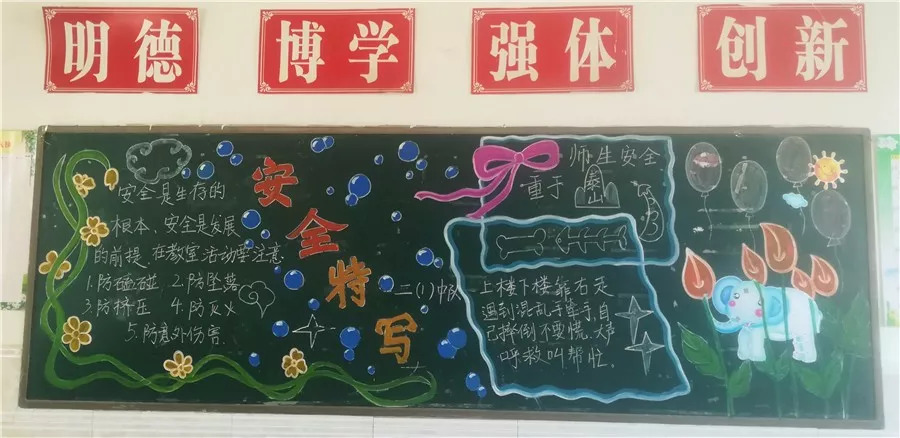 明德
博学
强体
创新
安全特写
安全是生存的
根本、安全是发展
的前提,在教室活动要注意:
1.防磕碰 2.防坠落
3.防挤压 4.防火
5.防意外伤害.
二(1)中队
师生安全
重于泰山
上楼下楼靠右走
遇到混乱手牵手,自
己摔倒不要慌,大声
呼救叫帮忙。